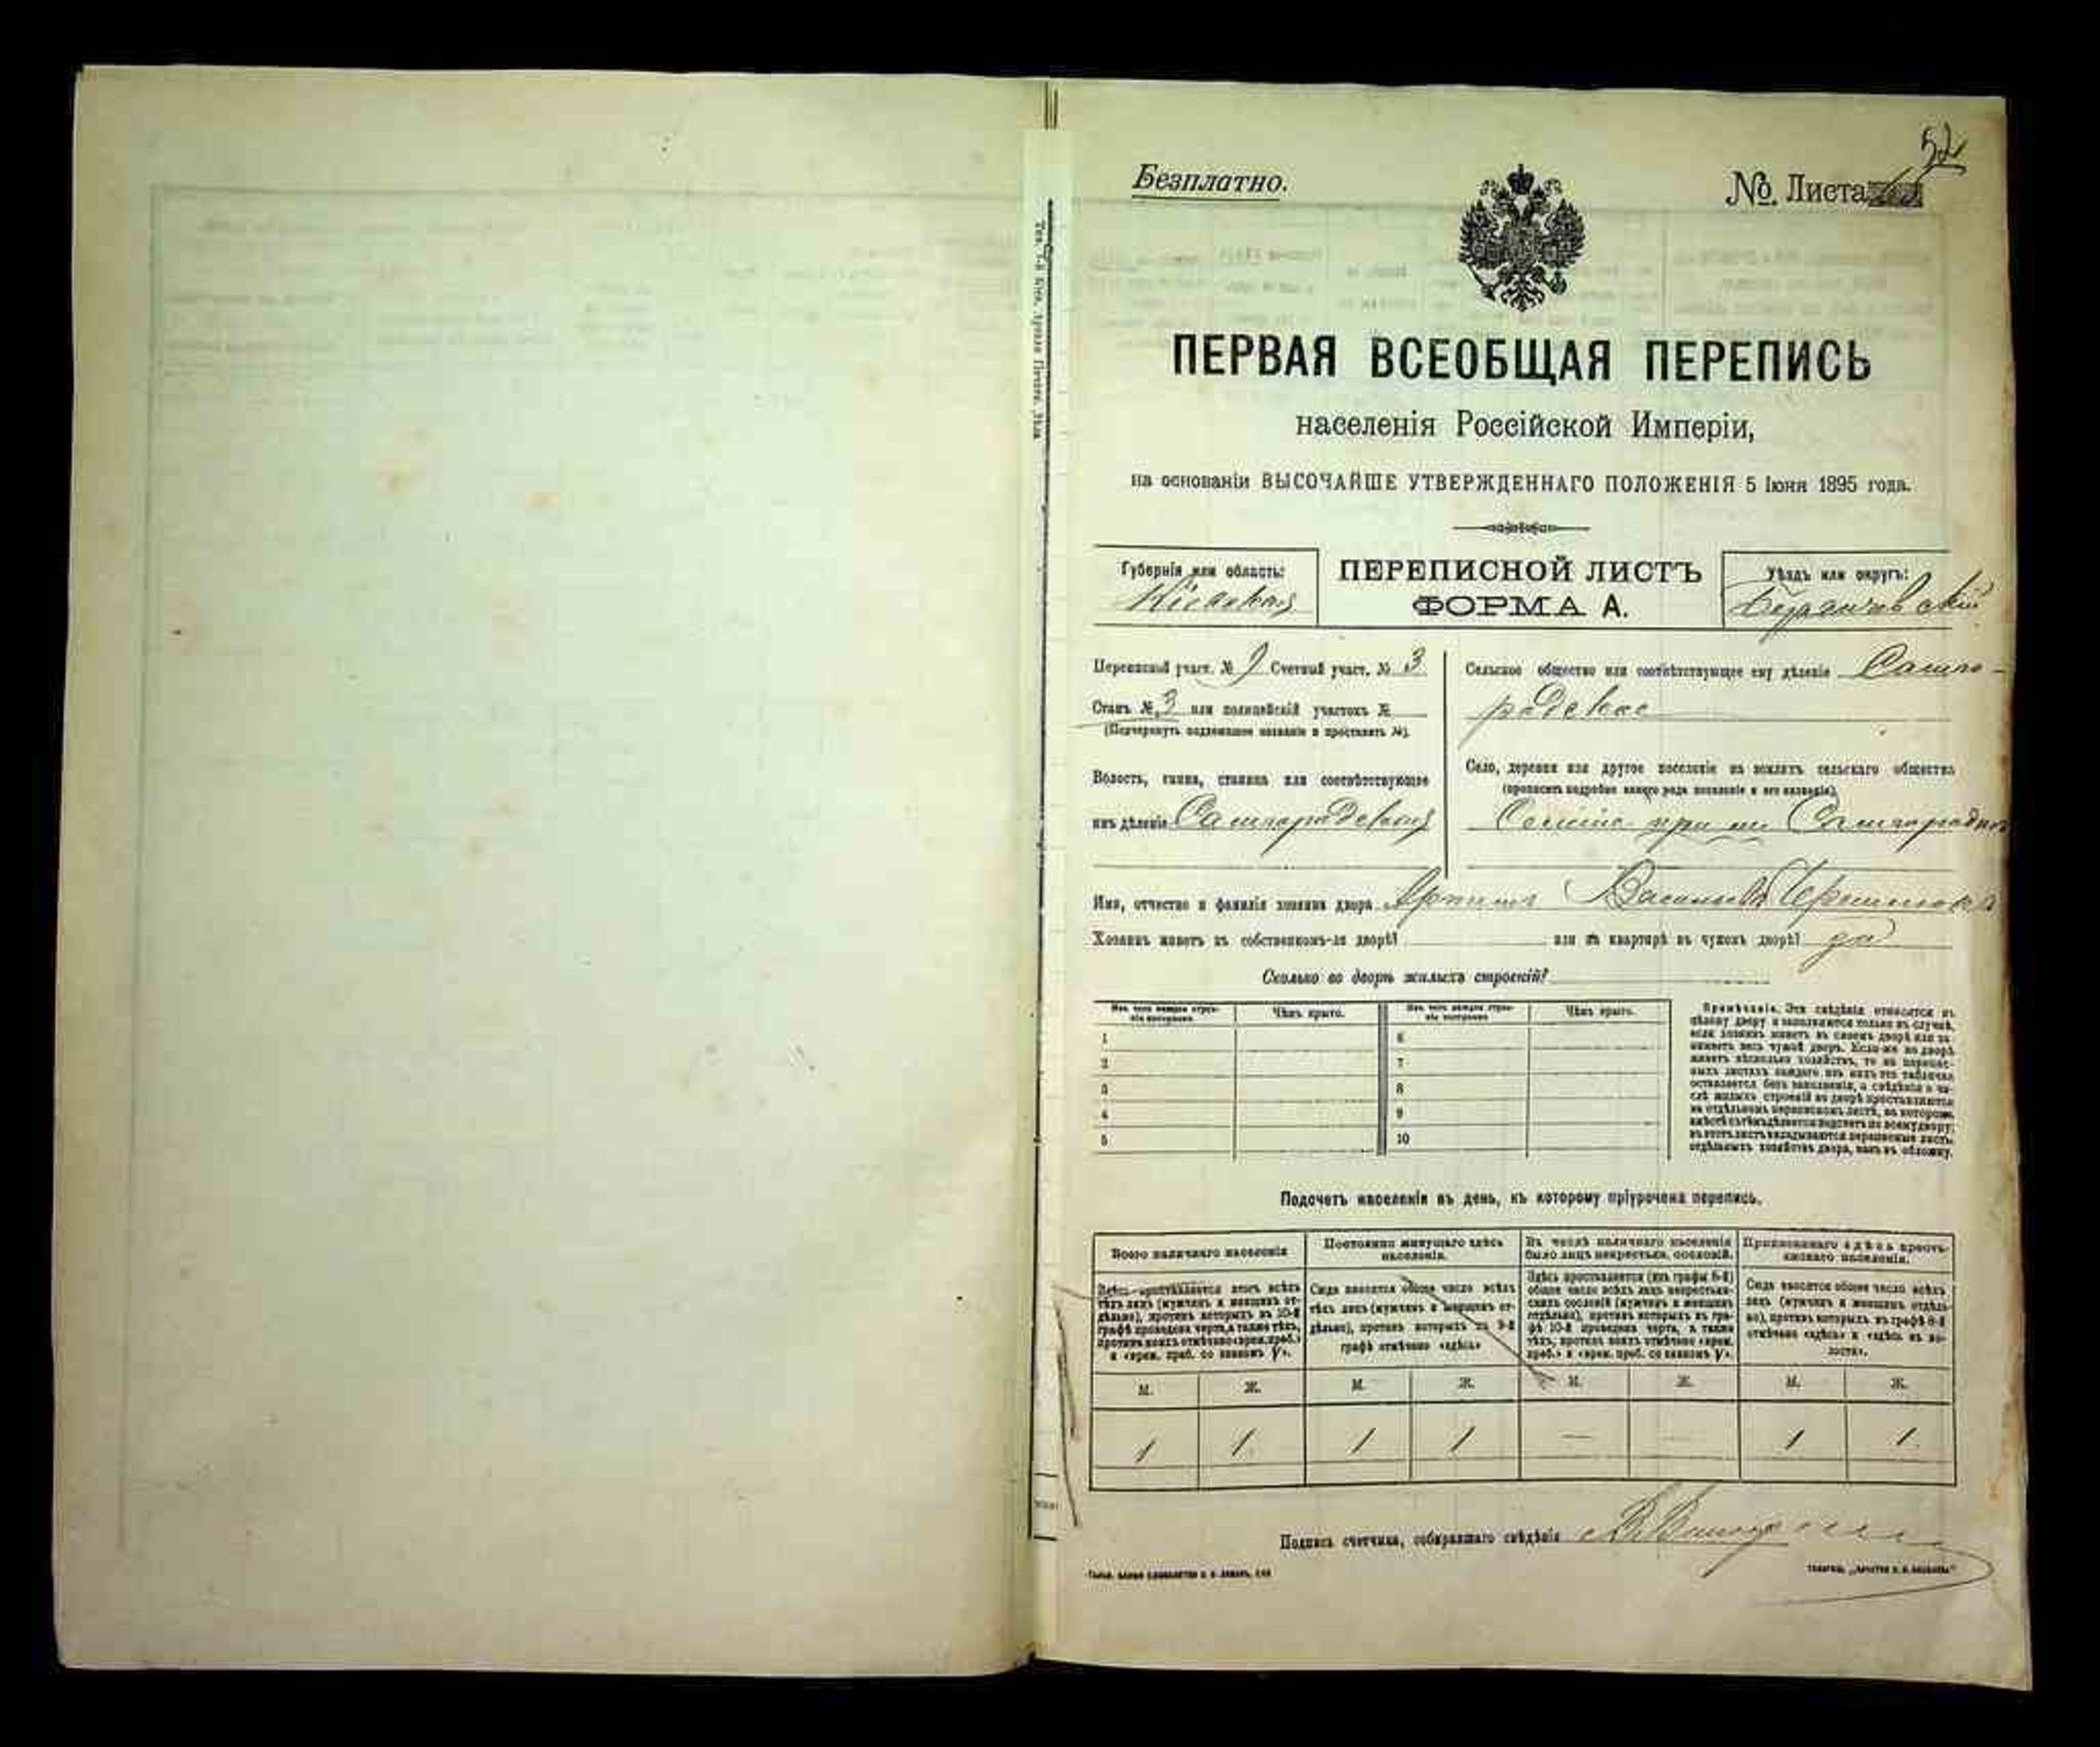 52
Безплатно.
№ Листа
ПЕРВАЯ ВСЕОБЩАЯ ПЕРЕПИСЬ
населенія Россійской Имперіи,
на основаніи ВЫСОЧАЙШЕ УТВЕРЖДЕННАГО ПОЛОЖЕНІЯ 5 Іюня 1895 года.
Губернія или область:
Кіевская
ПЕРЕПИСНОЙ ЛИСТЪ
ФОРМА А.
Уѣздъ или округъ:
Бердичевскій
Переписной участ. № 9 Счетный участ. № 3
Станъ № 3 или полицейскій участокъ №
(Подчеркнуть надлежащее названіе и проставить №).
Волость, гмина, станица или соотвѣтствующее
имъ дѣленіе Самгородская
Сельское общество или соотвѣтствующее ему дѣленіе Самго-
родское
Село, деревня или другое поселеніе на земляхъ сельскаго общества
(прописать подробно какого рода поселеніе и его названіе).
при м. Самгородке
Имя, отчество и фамилія хозяина двора Васильевъ
Хозяинъ живетъ въ собственномъ-ли дворѣ? или на квартирѣ въ чужомъ дворѣ? да
Сколько во дворѣ жилыхъ строеній?
Изъ чего каждое строеніе построено.
Чѣмъ крыто.
Изъ чего каждое строеніе построено
Чѣмъ крыто.
1
2
3
4
5
6
7
8
9
10
Примѣчаніе. Эти свѣдѣнія относятся къ
цѣлому двору и заполняются только въ случаѣ,
если хозяинъ живетъ въ своемъ дворѣ или за-
нимаетъ весь чужой дворъ. Если-же во дворѣ
живетъ нѣсколько хозяйствъ, то на перепис-
ныхъ листахъ каждаго изъ нихъ эта табличка
оставляется безъ заполненія, а свѣдѣнія о чи-
слѣ жилыхъ строеній во дворѣ проставляются
на отдѣльномъ переписномъ листѣ, на которомъ
вмѣстѣ съ тѣмъ дѣлается подсчетъ по всему двору;
въ этотъ листъ вкладываются переписные листы
отдѣльныхъ хозяйствъ двора, какъ въ обложку.
Подсчетъ населенія въ день, къ которому пріурочена перепись.
Всего наличнаго населенія
Здѣсь проставляется итогъ всѣхъ
тѣхъ лицъ (мужчинъ и женщинъ от-
дѣльно), противъ которыхъ въ 10-й
графѣ проведена черта, а также тѣхъ,
противъ коихъ отмѣчено «врем. преб.»
и «врем. преб. со знакомъ V».
Постоянно живущаго здѣсь
населенія.
Сюда вносится общее число всѣхъ
тѣхъ лицъ (мужчинъ и женщинъ от-
дѣльно), противъ которыхъ въ 9-й
графѣ отмѣчено «здѣсь»
Въ числѣ наличнаго населенія
было лицъ некрестьян. сословій.
Здѣсь проставляется (изъ графы 8-й)
общее число всѣхъ лицъ некрестьян-
скихъ сословій (мужчинъ и женщинъ
отдѣльно), противъ которыхъ въ гра-
фѣ 10-й проведена черта, а также
тѣхъ, противъ коихъ отмѣчено «врем.
преб.» и «врем. преб. со знакомъ V».
Приписаннаго здѣсь кресть-
янскаго населенія.
Сюда вносится общее число всѣхъ
лицъ (мужчинъ и женщинъ отдѣль-
но), противъ которыхъ въ графѣ 8-й
отмѣчено «здѣсь» и «здѣсь въ во-
лости».
М. Ж. М. Ж. М. Ж. М. Ж.
1 1 1 1 — — 1 1
Подпись счетчика, собиравшаго свѣдѣнія